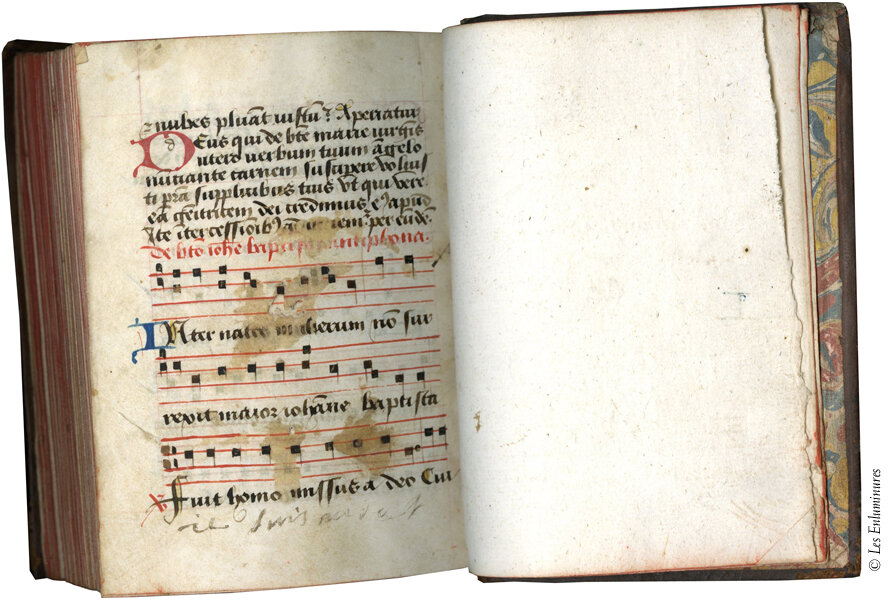 nubes pluāt iustū: Aperiatur
DEus qui de bte marie virgīs
utero verbum tuum āgelo
nūtiante carnem suscipere volius
ti pr̄a supplicibus tuis ut qui vere
eā genitricem dei credimus eiꝰ apud
te ītercessionibꝰ per eundē.
de btō iohē baptista antiphona.
INter natos mulierum nō sur
rexit maior iohāne baptista
Fuit homo missus a deo Cui
© Les Enluminures